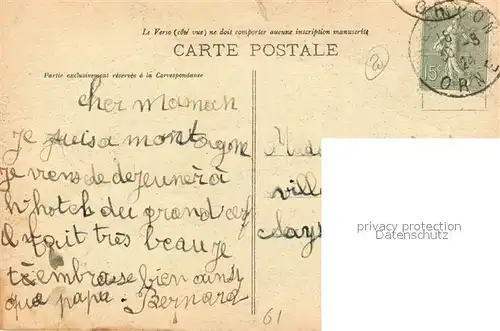 Le Verso (côté vue) ne doit comporter aucune inscription manuscrite
CARTE POSTALE
Partie exclusivement réservée à la Correspondance
2
15c
ORN
cher maman
je suis a montagne
Je viens de dejeuner à
l'hotel du grand cerf
il fait très beau je
t'embrasse bien ainsi
que papa. Bernard
Mada
ville
Says
privacy protection
Datenschutz
61